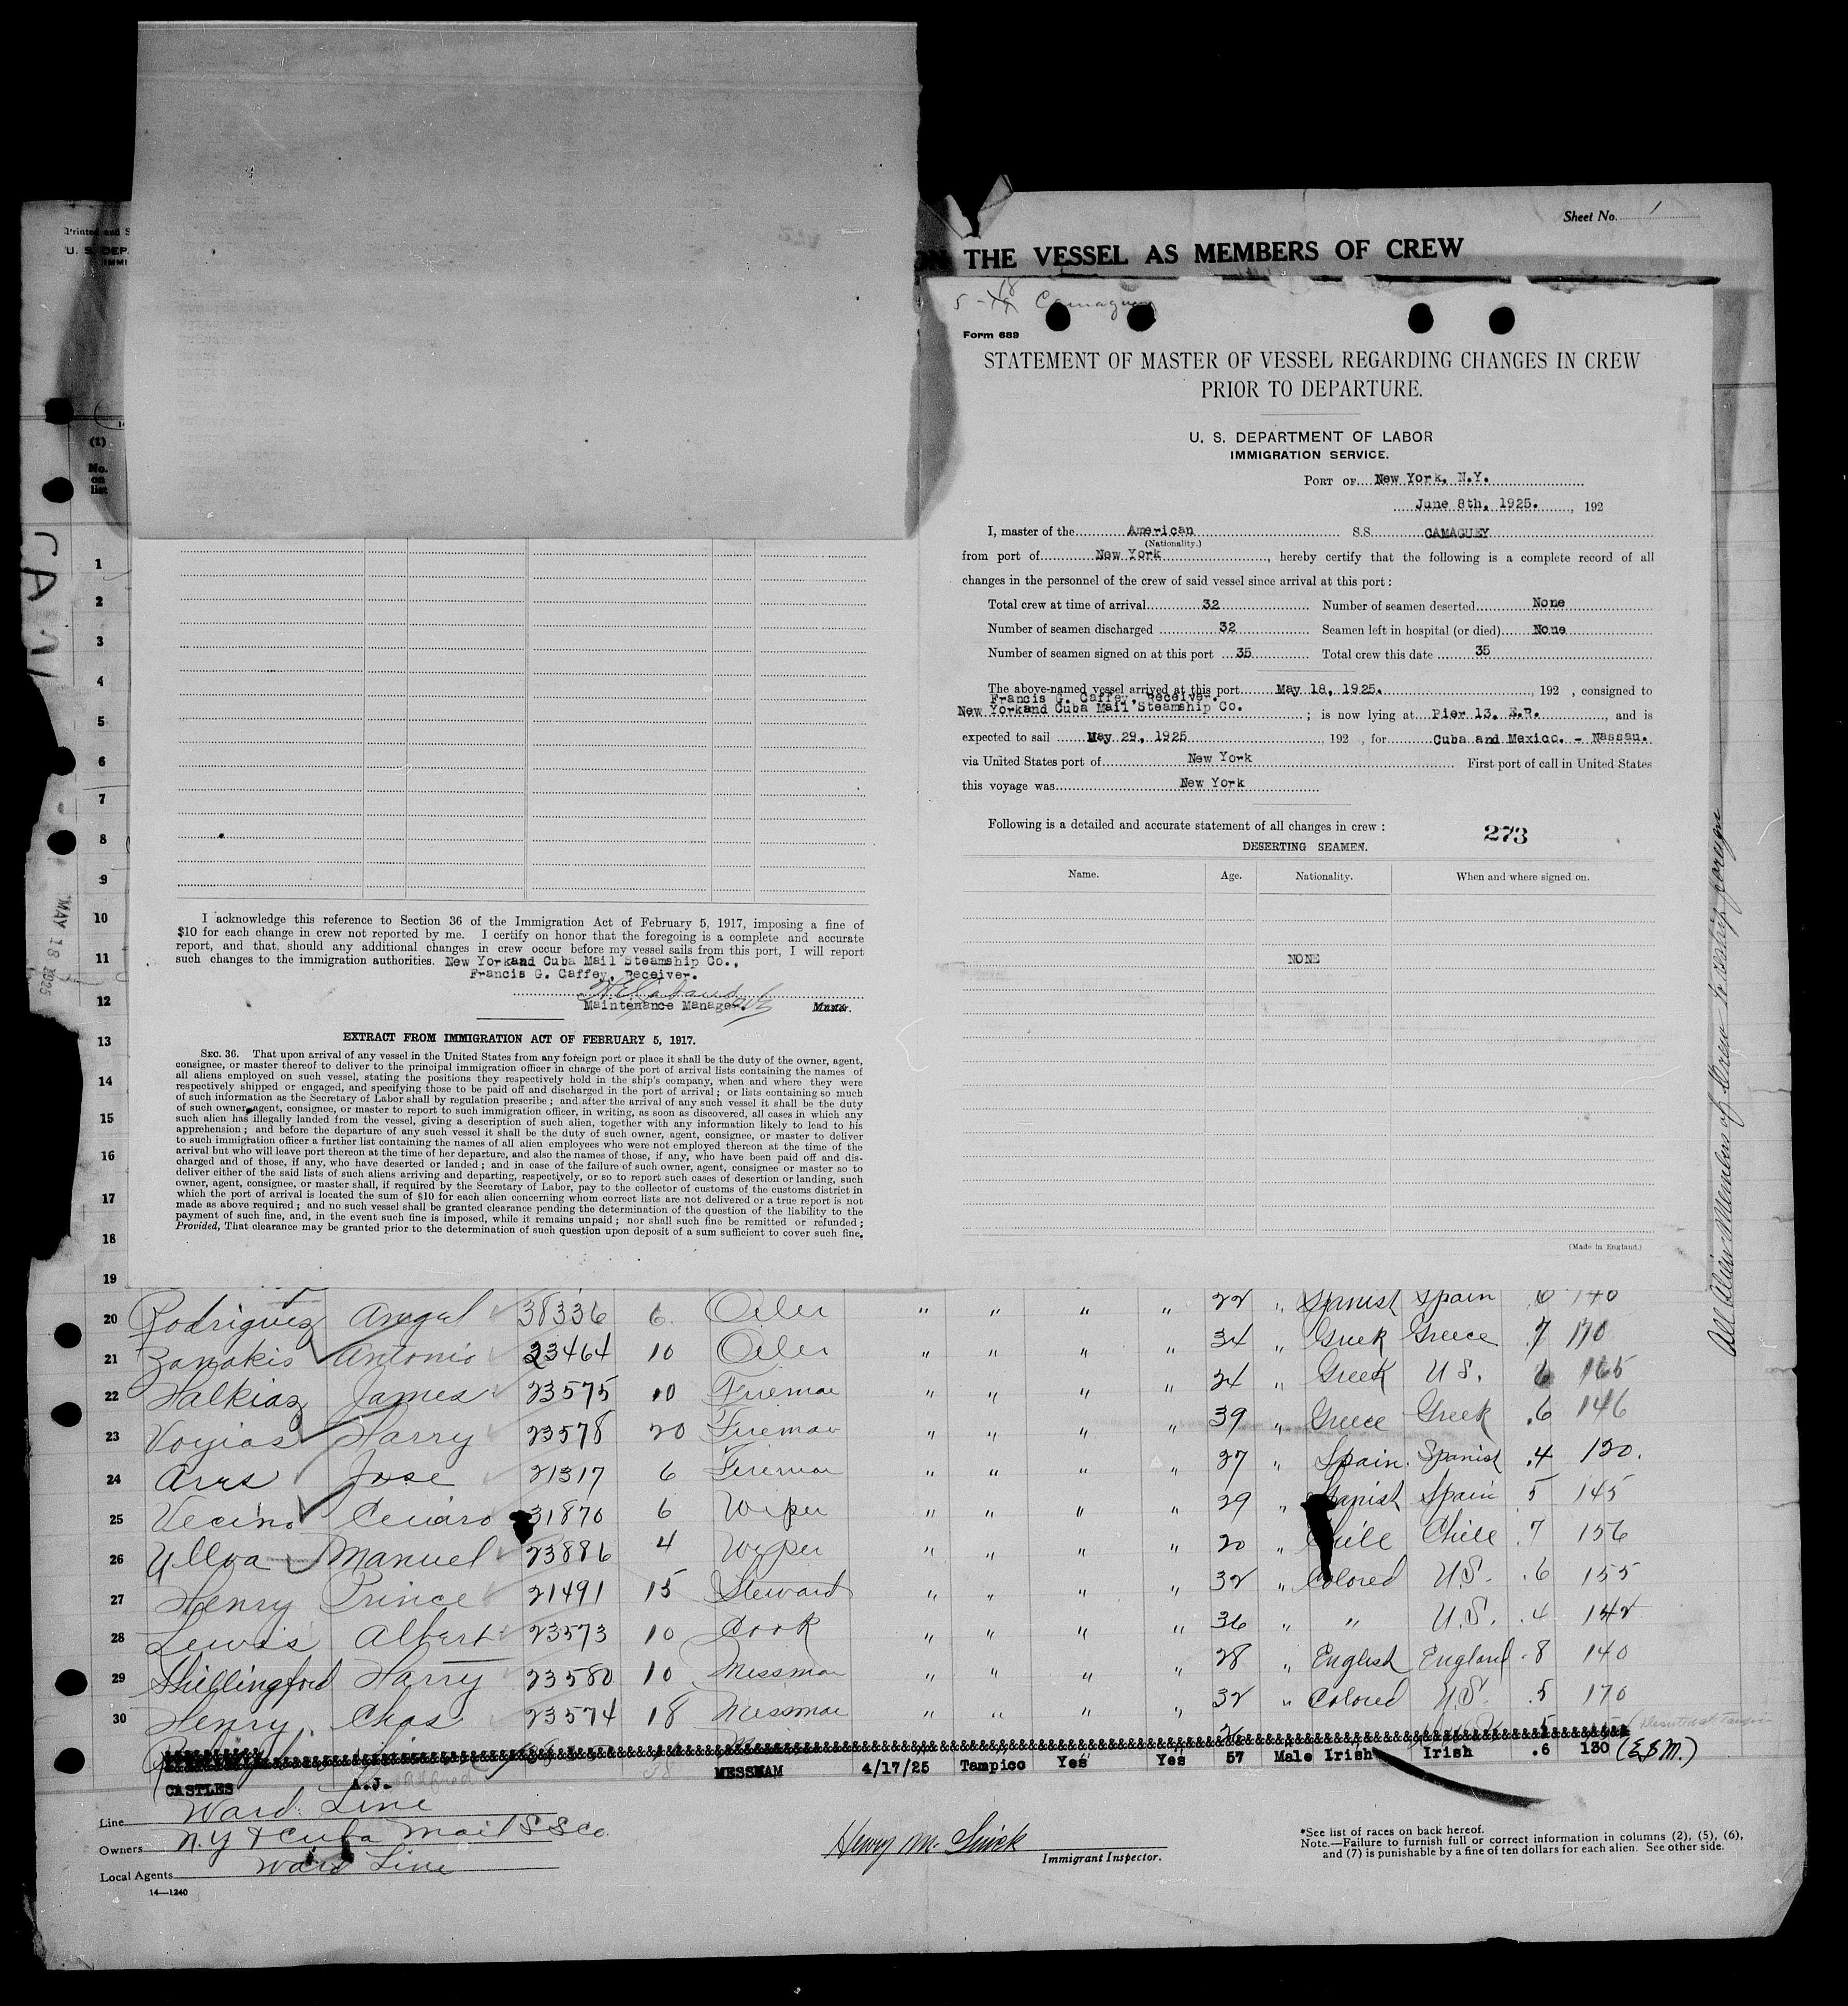 Printed and S
U. S. DEP
IMMI
Sheet No. 1
THE VESSEL AS MEMBERS OF CREW
(1)
No.
on
list
MAY 18 1925
1
2
3
4
5
6
7
8
9
10
11
12
13
14
15
16
17
18
19
I acknowledge this reference to Section 36 of the Immigration Act of February 5, 1917, imposing a fine of
$10 for each change in crew not reported by me. I certify on honor that the foregoing is a complete and accurate
report, and that, should any additional changes in crew occur before my vessel sails from this port, I will report
such changes to the immigration authorities. New Yorkand Cuba Mail Steamship Co.,
Francis G. Caffey, Receiver.
Maintenance Manager.
EXTRACT FROM IMMIGRATION ACT OF FEBRUARY 5, 1917.
SEC. 36. That upon arrival of any vessel in the United States from any foreign port or place it shall be the duty of the owner, agent,
consignee, or master thereof to deliver to the principal immigration officer in charge of the port of arrival lists containing the names of
all aliens employed on such vessel, stating the positions they respectively hold in the ship's company, when and where they were
respectively shipped or engaged, and specifying those to be paid off and discharged in the port of arrival; or lists containing so much
of such information as the Secretary of Labor shall by regulation prescribe; and after the arrival of any such vessel it shall be the duty
of such owner, agent, consignee, or master to report to such immigration officer, in writing, as soon as discovered, all cases in which any
such alien has illegally landed from the vessel, giving a description of such alien, together with any information likely to lead to his
apprehension; and before the departure of any such vessel it shall be the duty of such owner, agent, consignee, or master to deliver
to such immigration officer a further list containing the names of all alien employees who were not employed thereon at the time of the
arrival but who will leave port thereon at the time of her departure, and also the names of those, if any, who have been paid off and dis-
charged and of those, if any, who have deserted or landed; and in case of the failure of such owner, agent, consignee or master so to
deliver either of the said lists of such aliens arriving and departing, respectively, or so to report such cases of desertion or landing, such
owner, agent, consignee, or master shall, if required by the Secretary of Labor, pay to the collector of customs of the customs district in
which the port of arrival is located the sum of $10 for each alien concerning whom correct lists are not delivered or a true report is not
made as above required; and no such vessel shall be granted clearance pending the determination of the question of the liability to the
payment of such fine, and, in the event such fine is imposed, while it remains unpaid; nor shall such fine be remitted or refunded;
Provided, That clearance may be granted prior to the determination of such question upon deposit of a sum sufficient to cover such fine.
5-18 Camaguey
Form 689
STATEMENT OF MASTER OF VESSEL REGARDING CHANGES IN CREW
PRIOR TO DEPARTURE.
U. S. DEPARTMENT OF LABOR
IMMIGRATION SERVICE.
PORT OF New York, N.Y.
June 8th, 1925. , 192
I, master of the American S.S. CAMAGUEY
(Nationality.)
from port of New York, hereby certify that the following is a complete record of all
changes in the personnel of the crew of said vessel since arrival at this port:
Total crew at time of arrival 32 Number of seamen deserted None
Number of seamen discharged 32 Seamen left in hospital (or died) None
Number of seamen signed on at this port 35 Total crew this date 35
The above-named vessel arrived at this port May 18, 1925. , 192 , consigned to
Francis G. Caffey, Receiver.
New Yorkand Cuba Mail Steamship Co. ; is now lying at Pier 13, E.R. , and is
expected to sail May 29, 1925 192 , for Cuba and Mexico. - Nassau.
via United States port of New York First port of call in United States
this voyage was New York
Following is a detailed and accurate statement of all changes in crew:
273
DESERTING SEAMEN.
Name. Age. Nationality. When and where signed on.
NONE
(Made in England.)
All Alien Members of Crew to reship foreign
20 Rodriguez Angel 38336 6 Oiler " " " " 22 " Spanish Spain 6 140
21 Zanakis Antonio 23464 10 Oiler " " " " 34 " Greek Greece .7 170
22 Halkiaz James 23575 10 Fireman " " " " 24 " Greek U.S. 6 165
23 Voyias Harry 23578 20 Fireman " " " " 39 " Greece Greek .6 146
24 Ares Jose 21317 6 Fireman " " " " 27 " Spain Spanish .4 120.
25 Vecino 31870 6 Wiper " " " " 29 " Spanish Spain 5 145
26 Ulloa Manuel 23886 4 Wiper " " " " 20 " Chile Chile .7 156
27 Henry Prince 21491 15 Steward " " " " 32 " Colored U.S. .6 155
28 Lewis Albert 23573 10 Cook " " " " 36 " " U.S. .4 142
29 Shillingford Harry 23580 10 Messman " " " " 28 " English England .8 140
30 Henry Chas 23574 18 Messman " " " " 32 " Colored U.S. .5 170
CASTLES A.J. MESSMAM 4/17/25 Tampico Yes Yes 57 Male Irish Irish .6 130 (E.B.M.)
Line Ward Line
Owners N.Y & Cuba Mail S S Co.
Local Agents Ward Line
14—1240
Immigrant Inspector.
*See list of races on back hereof.
Note.—Failure to furnish full or correct information in columns (2), (5), (6),
and (7) is punishable by a fine of ten dollars for each alien. See other side.